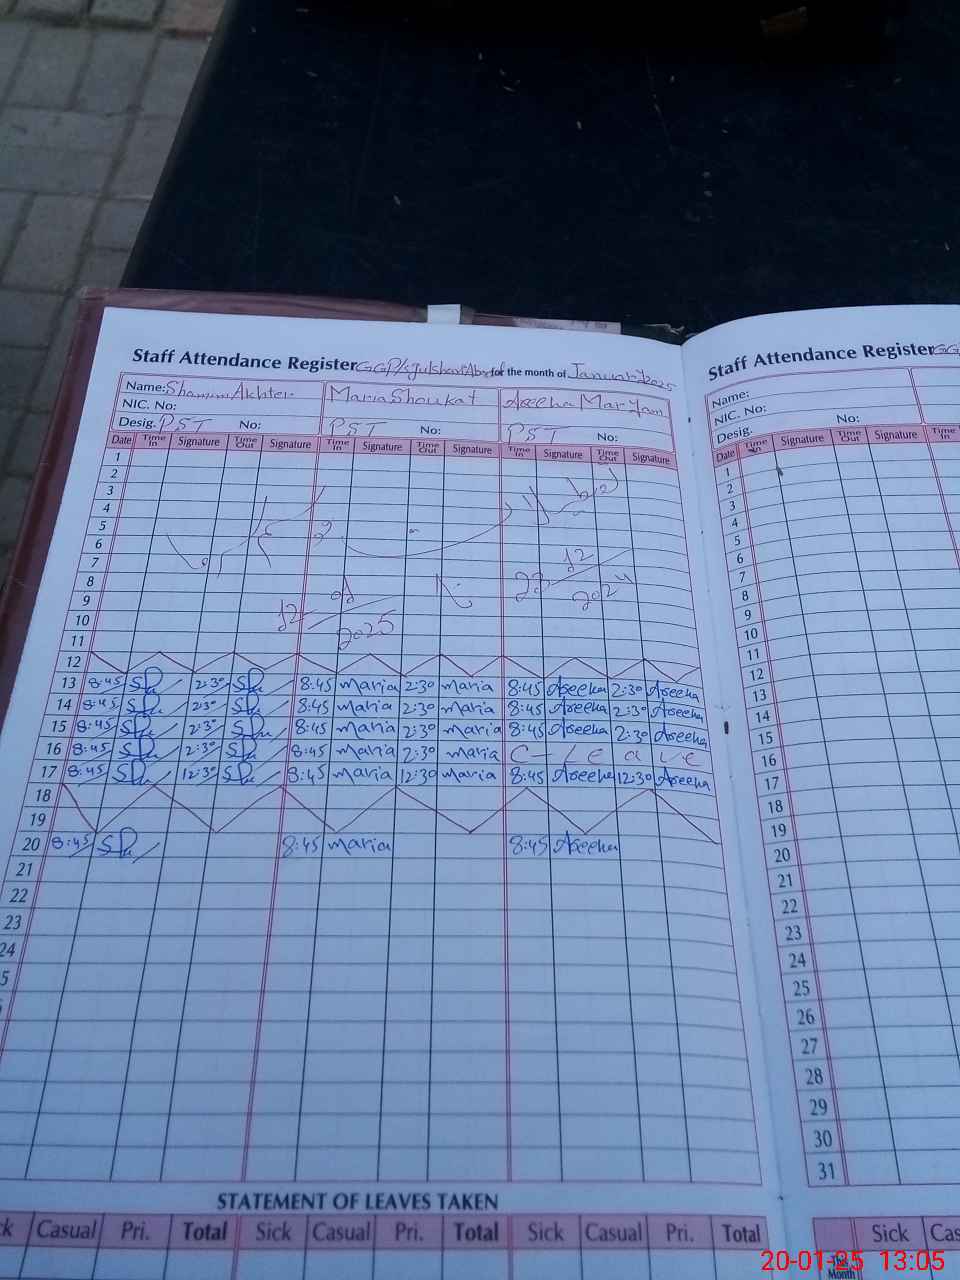 Staff Attendance Register GGP/S gulshan Aba for the month of January 2025
Name: Shamim Akhter Maria Shoukat Areeha Maryam
NIC. No:
Desig. PST No: PST No: PST No:
Date Time In Signature Time Out Signature Time In Signature Time Out Signature Time In Signature Time Out Signature
1
2
3
4
5
6
7 12
8 01 23 2024
9 12
10 2025
11
12
13 8:45 2:30 8:45 maria 2:30 maria 8:45 Areeha 2:30 Areeha
14 8:45 2:30 8:45 maria 2:30 maria 8:45 Areeha 2:30 Areeha
15 8:45 2:30 8:45 maria 2:30 maria 8:45 Areeha 2:30 Areeha
16 8:45 2:30 8:45 maria 2:30 maria C-leave
17 8:45 12:30 8:45 maria 12:30 maria 8:45 Areeha 12:30 Areeha
18
19
20 8:45 8:45 maria 8:45 Areeha
21
22
23
24
5
STATEMENT OF LEAVES TAKEN
ck Casual Pri. Total Sick Casual Pri. Total Sick Casual Pri. Total
Staff Attendance Register GG
Name:
NIC. No:
Desig. No:
Date Time In Signature Time Out Signature Time In
1
2
3
4
5
6
7
8
9
10
11
12
13
14
15
16
17
18
19
20
21
22
23
24
25
26
27
28
29
30
31
This Month Sick Cas
20-01-25 13:05